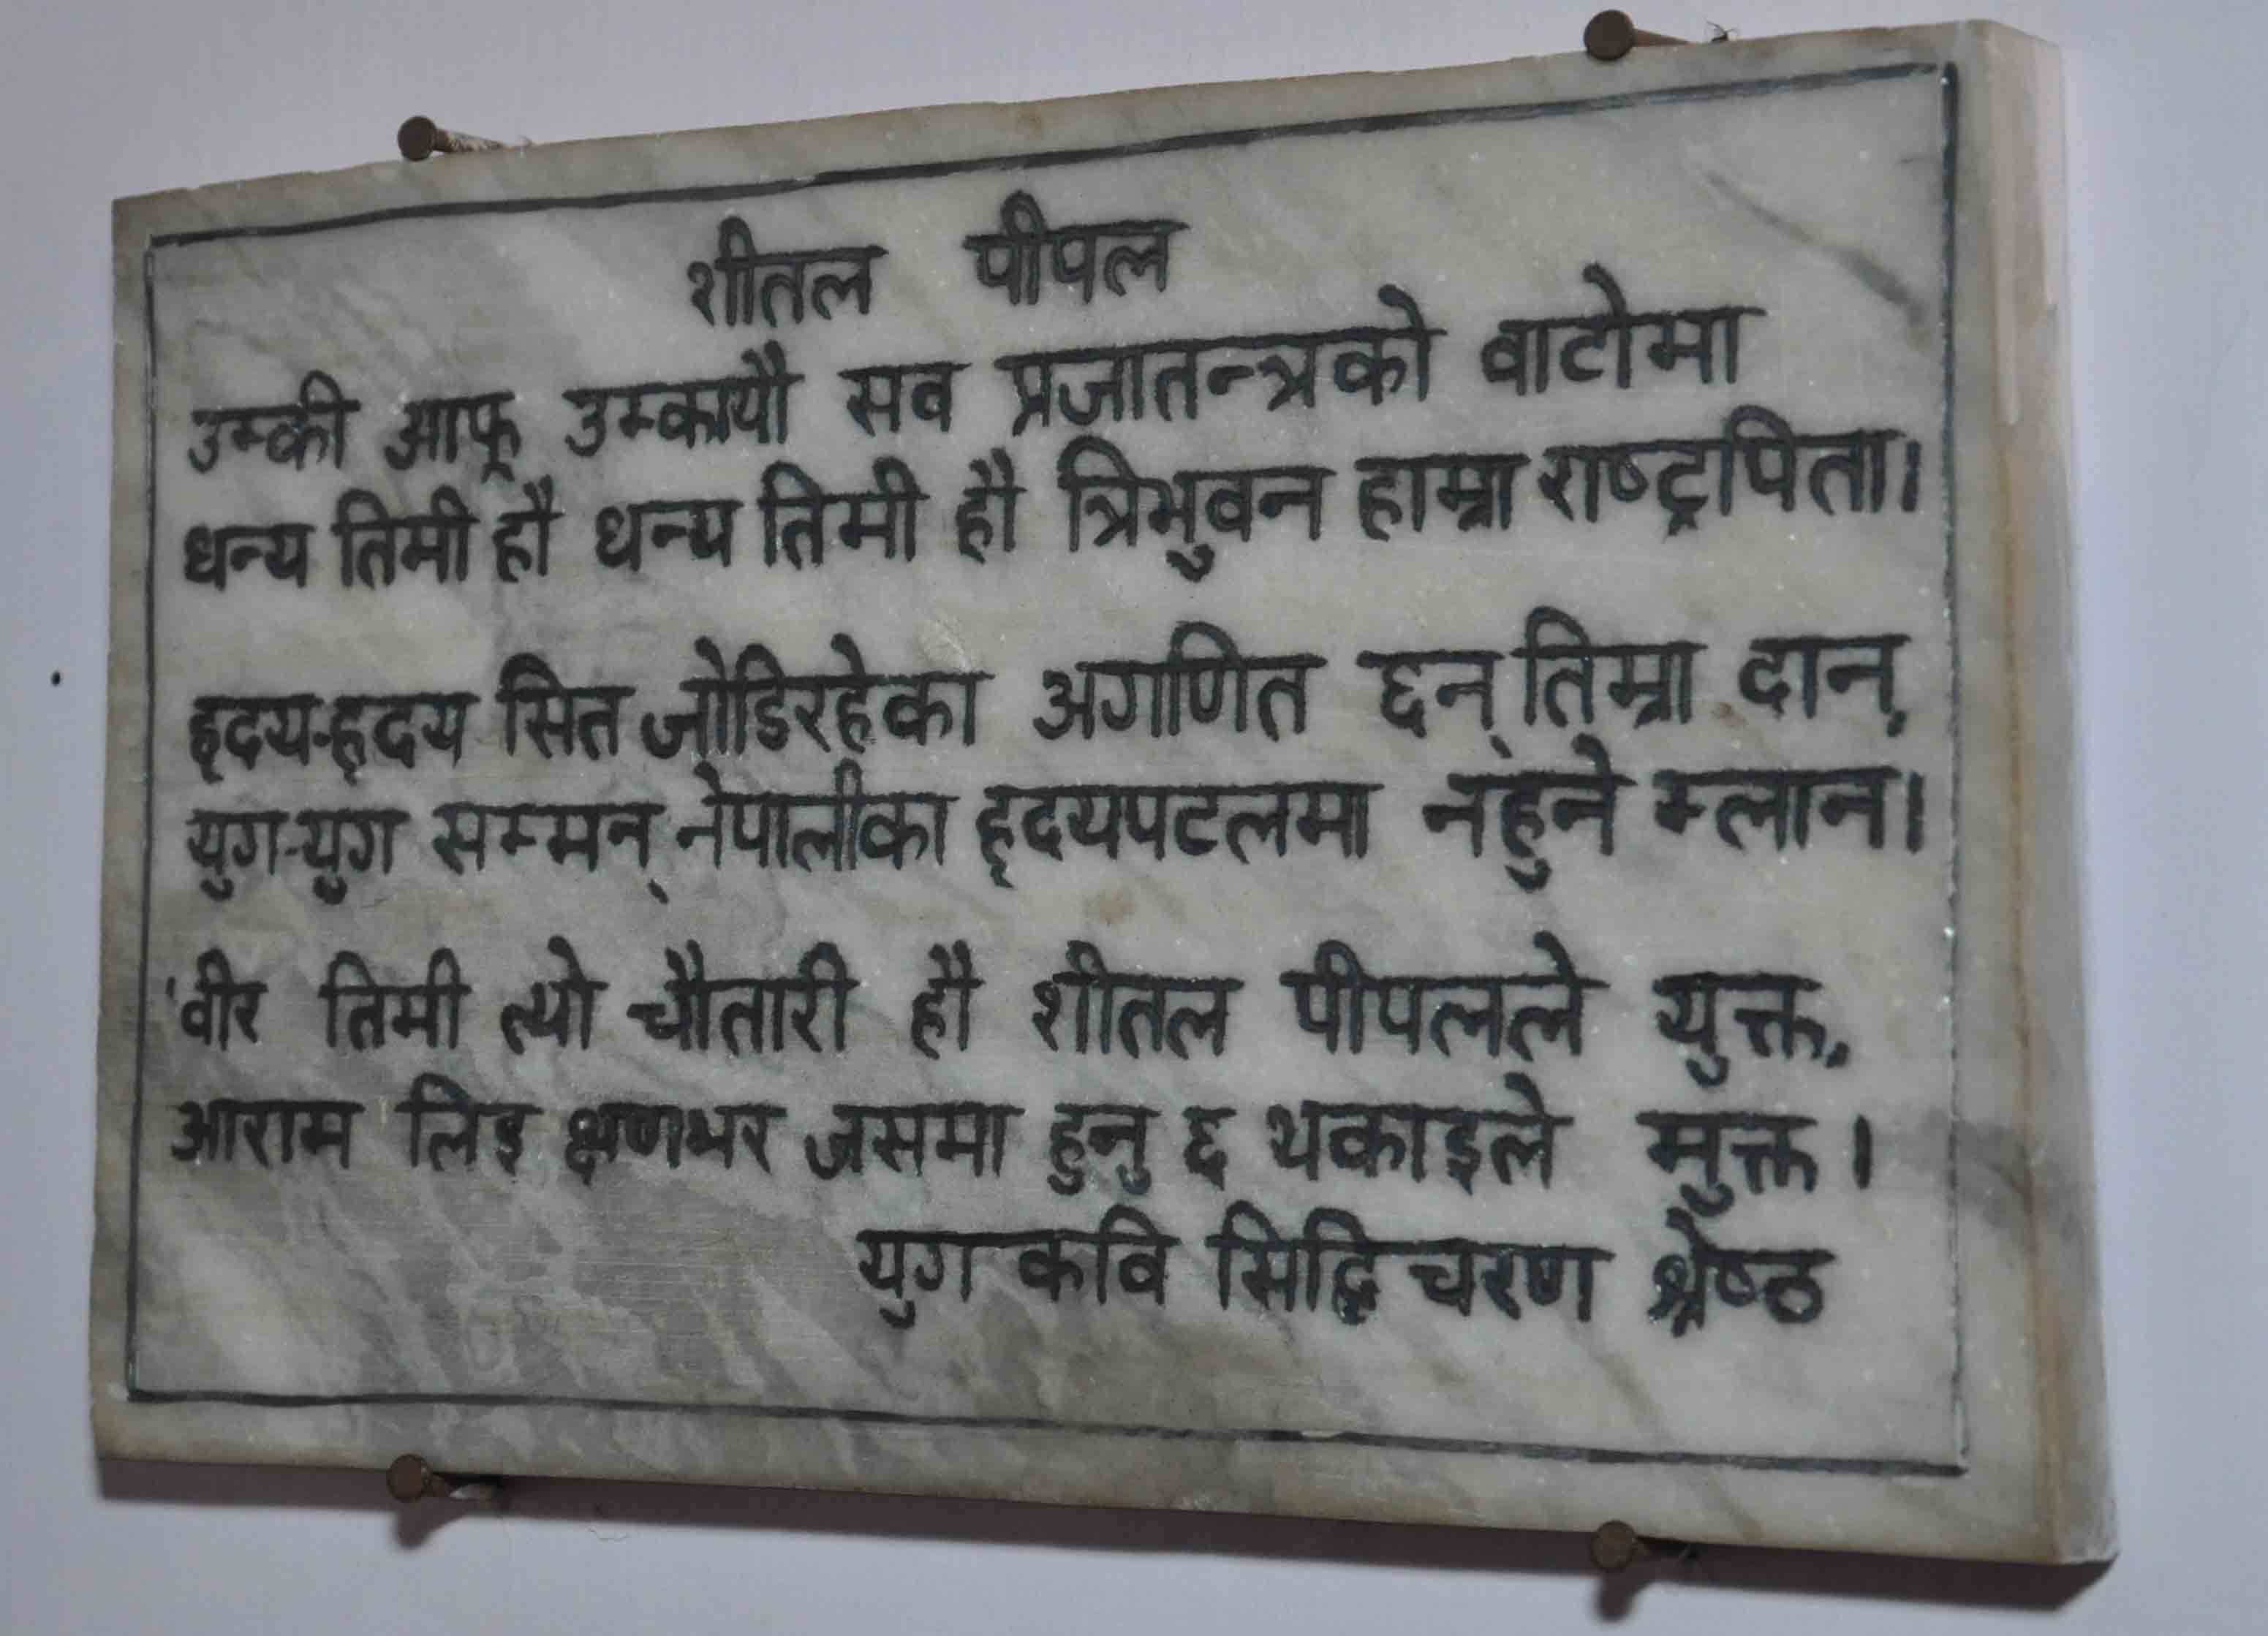 शीतल पीपल
उम्की आफू उम्कायौ सव प्रजातन्त्रको वाटोमा
धन्य तिमी हौ धन्य तिमी हौ त्रिभुवन हाम्रा राष्ट्रपिता।
हृदय-हृदय सित जोडिरहेका अगणित छन् तिम्रा दान,
युग-युग सम्मन् नेपालीका हृदयपटलमा नहुने म्लान।
'वीर तिमी त्यो चौतारी हौ शीतल पीपलले युक्त,
आराम लिइ क्षणभर जसमा हुनु छ थकाइले मुक्त।
युग कवि सिद्धि चरण श्रेष्ठ